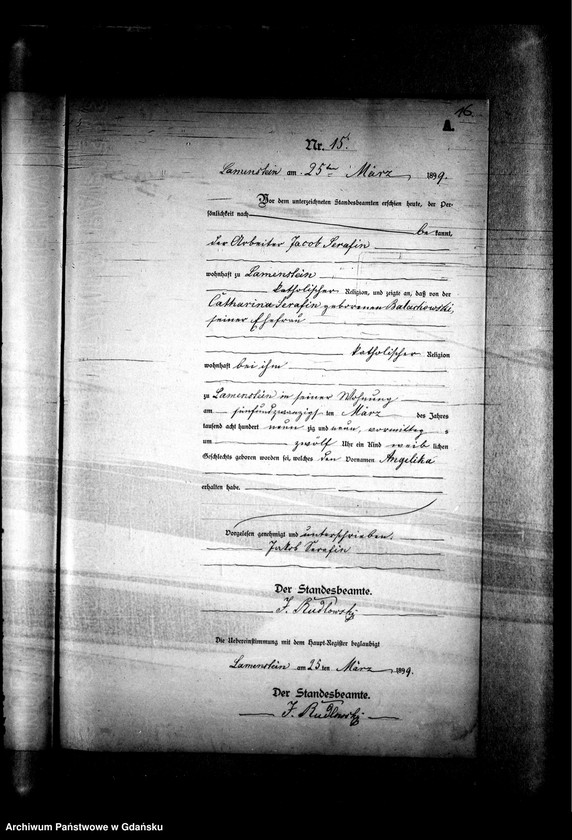 16.
A.
Nr. 15.
Lamenstein am 25ten März 1899.
Vor dem unterzeichneten Standesbeamten erschien heute, der Per-
sönlichkeit nach
be kannt,
der Arbeiter Jacob Serafin
wohnhaft zu Lamenstein
katholischer Religion, und zeigte an, daß von der
Catharina Serafin geborenen Baluchowski,
seiner Ehefrau
katholischer Religion
wohnhaft bei ihm
zu Lamenstein in seiner Wohnung
am fünfundzwanzigs ten März des Jahres
tausend acht hundert neun zig und neun, vormittag s
um zwölf Uhr ein Kind weib lichen
Geschlechts geboren worden sei, welches den Vornamen Angelika
erhalten habe.
Vorgelesen, genehmigt und unterschrieben.
Jakob Serafin
Der Standesbeamte.
J. Rudlowski
Die Uebereinstimmung mit dem Haupt-Register beglaubigt
Lamenstein am 25 ten März 1899.
Der Standesbeamte.
J. Rudlowski
Archiwum Państwowe w Gdańsku